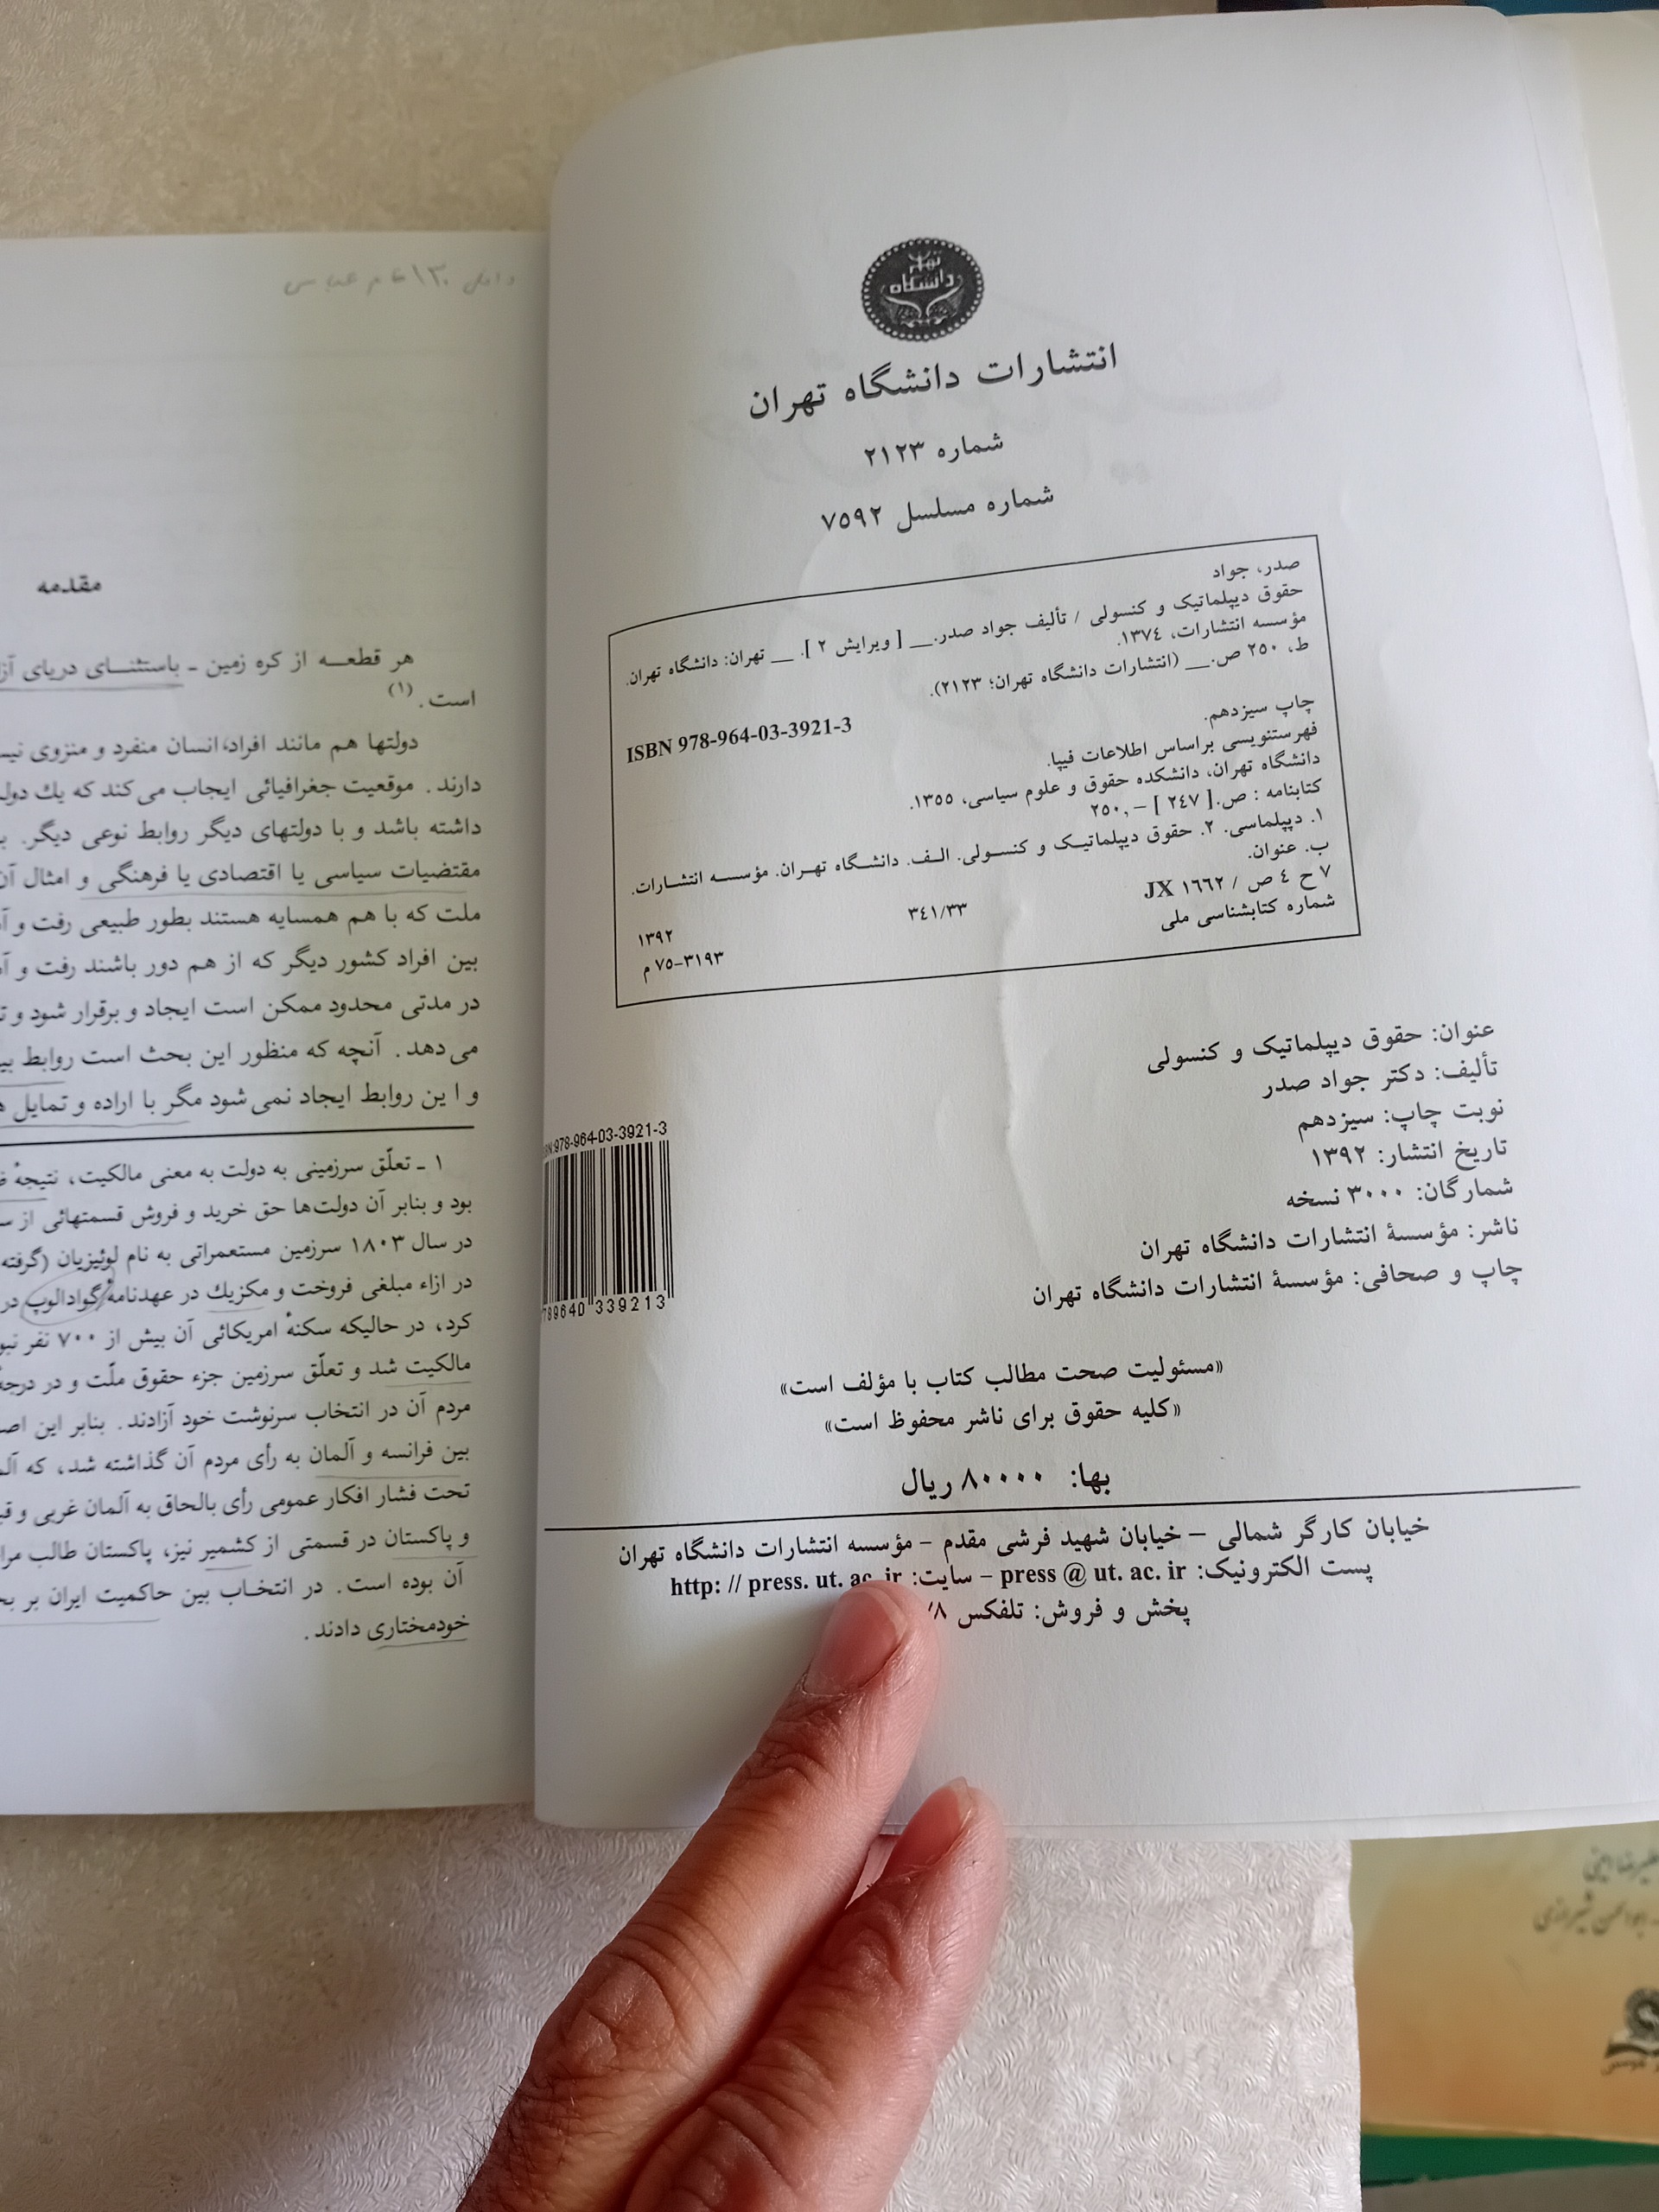 دانشگاه
تهران
انتشارات دانشگاه تهران
شماره ۲۱۲۳
شماره مسلسل ۷۵۹۲
صدر، جواد
حقوق دیپلماتیک و کنسولی / تألیف جواد صدر.__ [ ویرایش ۲ ]. __ تهران: دانشگاه تهران.
مؤسسه انتشارات، ۱۳۷٤.
ط، ۲۵۰ ص.__ (انتشارات دانشگاه تهران؛ ۲۱۲۳).
ISBN 978-964-03-3921-3
چاپ سیزدهم.
فهرستنویسی براساس اطلاعات فیپا.
دانشگاه تهران، دانشکده حقوق و علوم سیاسی، ۱۳۵۵.
کتابنامه : ص.[ ۲٤۷ ] – ۲۵۰,
۱. دیپلماسی. ۲. حقوق دیپلماتیـک و کنسـولی. الـف. دانشـگاه تهـران. مؤسسـه انتشـارات.
ب. عنوان.
۷ ح ٤ ص / ۱٦٦۲ JX
۳٤۱/۳۳
۱۳۹۲
شماره کتابشناسی ملی
۷۵-۳۱۹۳ م
عنوان: حقوق دیپلماتیک و کنسولی
تألیف: دکتر جواد صدر
نوبت چاپ: سیزدهم
تاریخ انتشار: ۱۳۹۲
شمارگان: ۳۰۰۰ نسخه
ناشر: مؤسسۀ انتشارات دانشگاه تهران
چاپ و صحافی: مؤسسۀ انتشارات دانشگاه تهران
:978-964-03-3921-3
789640 339213
«مسئولیت صحت مطالب کتاب با مؤلف است»
«کلیه حقوق برای ناشر محفوظ است»
بها: ۸۰۰۰۰ ریال
خیابان کارگر شمالی – خیابان شهید فرشی مقدم – مؤسسه انتشارات دانشگاه تهران
پست الکترونیک: press @ ut. ac. ir – سایت: http: // press. ut. ac. ir
پخش و فروش: تلفکس
مقدمه
هر قطعـــه از کره زمین ـ باستثنـــای دریای
است . (۱)
دولتها هم مانند افراد،انسان منفرد و منزوی
دارند . موقعیت جغرافیائی ایجاب می‌کند که یك
داشته باشد و با دولتهای دیگر روابط نوعی دیگر.
مقتضیات سیاسی یا اقتصادی یا فرهنگی و امثال
ملت که با هم همسایه هستند بطور طبیعی رفت و
بین افراد کشور دیگر که از هم دور باشند رفت و
در مدتی محدود ممکن است ایجاد و برقرار شود و
می‌دهد. آنچه که منظور این بحث است روابط
و ا ین روابط ایجاد نمی‌شود مگر با اراده و تمایل
۱ ـ تعلّق سرزمینی به دولت به معنی مالکیت، نتیجهٔ
بود و بنابر آن دولت‌ها حق خرید و فروش قسمتهائی از
در سال ۱۸۰۳ سرزمین مستعمراتی به نام لوئیزیان (گرفته
در ازاء مبلغی فروخت و مکزیك در عهدنامهٔ گوادالوپ در
کرد، در حالیکه سکنهٔ امریکائی آن بیش از ۷۰۰ نفر
مالکیت شد و تعلّق سرزمین جزء حقوق ملّت و در
مردم آن در انتخاب سرنوشت خود آزادند. بنابر این
بین فرانسه و آلمان به رأی مردم آن گذاشته شد، که
تحت فشار افکار عمومی رأی بالحاق به آلمان غربی و
و پاکستان در قسمتی از کشمیر نیز، پاکستان طالب
آن بوده است. در انتخـاب بین حاکمیت ایران بر
خودمختاری دادند .